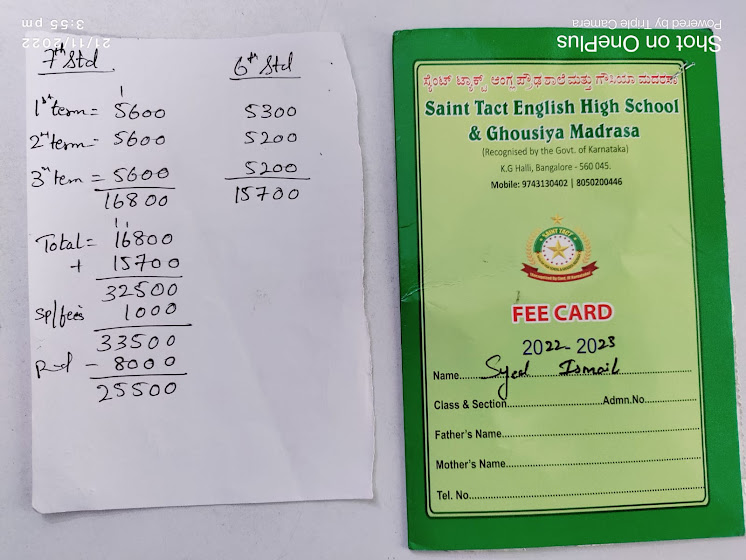 7th Std
1st term = 5600
2nd term = 5600
3rd term = 5600
16800
Total = 16800
+ 15700
32500
sp/fees 1000
33500
P-d - 8000
25500
6th Std
5300
5200
5200
15700
ಸೈಂಟ್ ಟ್ಯಾಕ್ಟ್ ಆಂಗ್ಲ ಪ್ರೌಢ ಶಾಲೆ ಮತ್ತು ಗೌಸಿಯಾ ಮದರಸಾ
Saint Tact English High School
& Ghousiya Madrasa
(Recognised by the Govt. of Karnataka)
K.G Halli, Bangalore - 560 045.
Mobile: 9743130402 | 8050200446
SAINT TACT
FEE CARD
2022-2023
Name....Syed Ismail
Class & Section....Admn.No....
Father's Name....
Mother's Name....
Tel. No....
Shot on OnePlus
Powered by Triple Camera
21/11/2022
3:55 pm